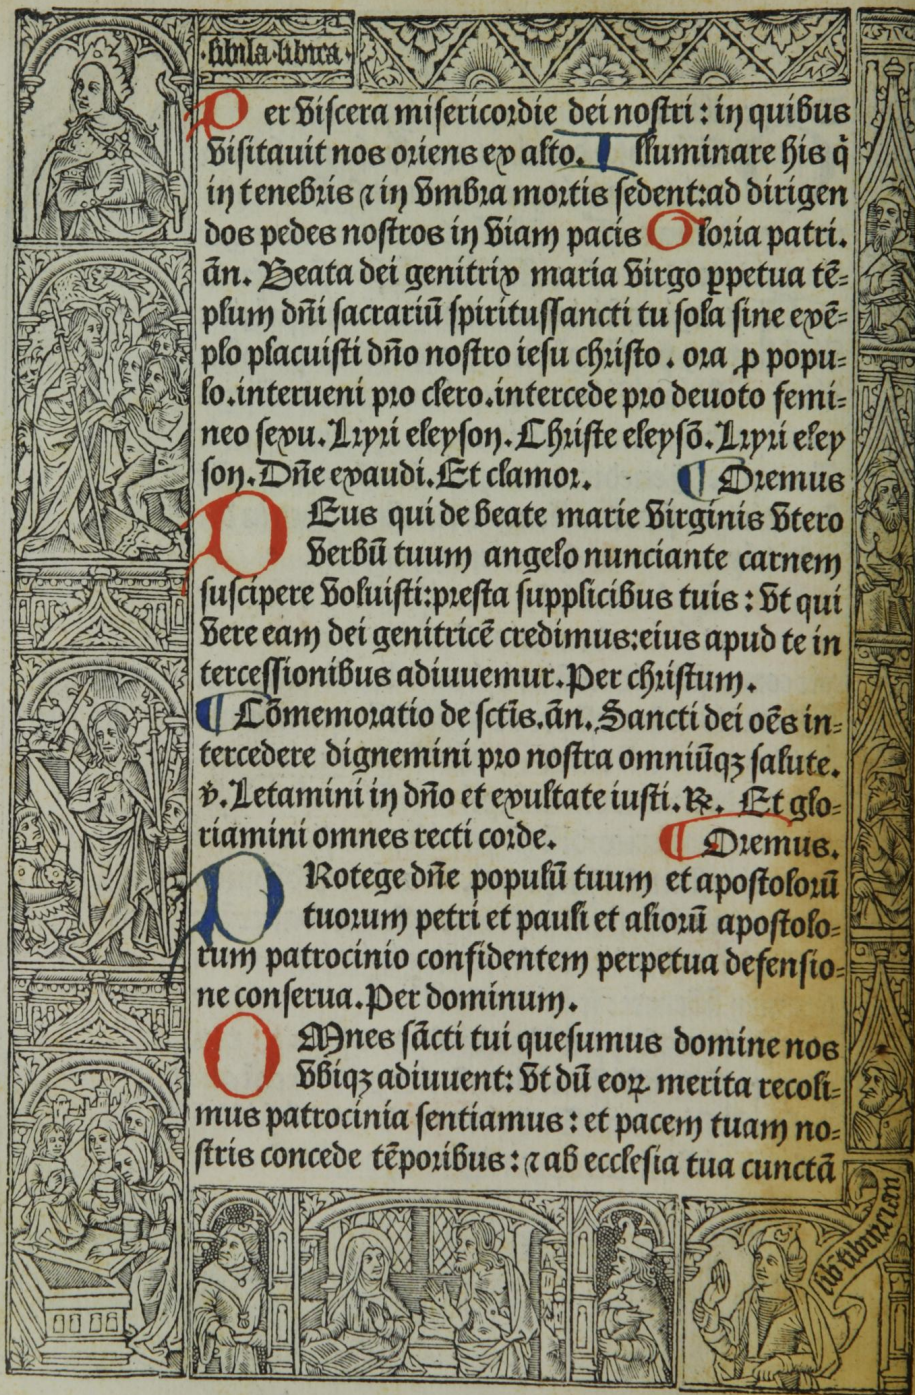 sibila libica
Per viscera misericordie dei nostri: in quibus
visitauit nos oriens ex alto. Illuminare his q̇
in tenebris ⁊ in vmbra mortis sedent:ad dirigen
dos pedes nostros in viam pacis Gloria patri.
añ. Beata dei genitrix maria virgo ꝑpetua tē-
plum dñi sacrariū spiritussancti tu sola sine exē-
plo placuisti dño nostro iesu christo. ora ꝓ popu-
lo.interueni pro clero.intercede pro deuoto femi-
neo sexu.Kyri eleyson.Christe eleysō.Kyri eley
son.Dñe exaudi.Et clamor. ¶ Oremus
DEus qui de beate marie virginis vtero
verbū tuum angelo nunciante carnem
suscipere voluisti:presta supplicibus tuis: vt qui
vere eam dei genitricē credimus:eius apud te in
tercessionibus adiuuemur.Per christum.
¶ Cōmemoratio de sctīs.añ.Sancti dei oēs in-
tercedere dignemini pro nostra omniūqꝫ salute.
v̇.Letamini in dño et exultate iusti.℞. Et glo-
riamini omnes recti corde. ¶ Oremus.
PRotege dñe populū tuum et apostolorū
tuorum petri et pauli et aliorū apostolo-
rum patrocinio confidentem perpetua defensio-
ne conserua.Per dominum.
OMnes sācti tui quesumus domine nos
vbiqꝫ adiuuent: vt dū eoꝝ merita recoli-
mus patrocinia sentiamus: et pacem tuam no-
stris concede tēporibus: ⁊ ab ecclesia tua cunctā
sib tiburciem